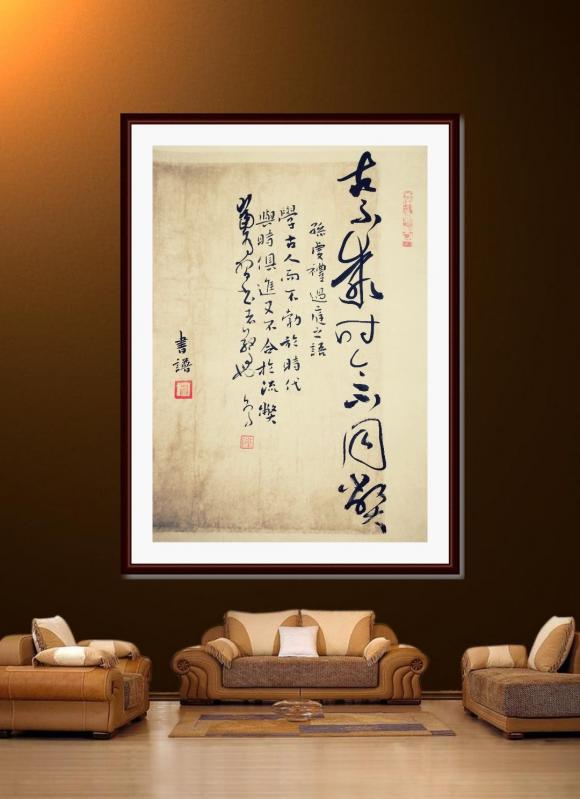 古不乖时今不同弊
孫虔禮過庭之語
學古人而不勃於時代
與時俱進又不合於流弊
書譜